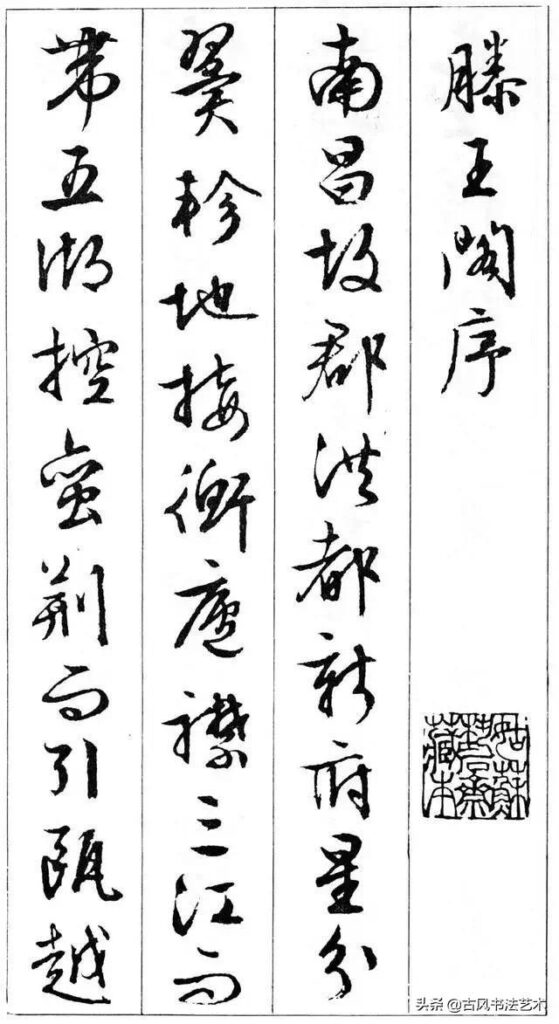 滕王閣序
南昌故郡洪都新府星分
翼軫地接衡廬襟三江而
帶五湖控蛮荊而引甌越
姑蘇
齋
藏本
头条 @古风书法艺术